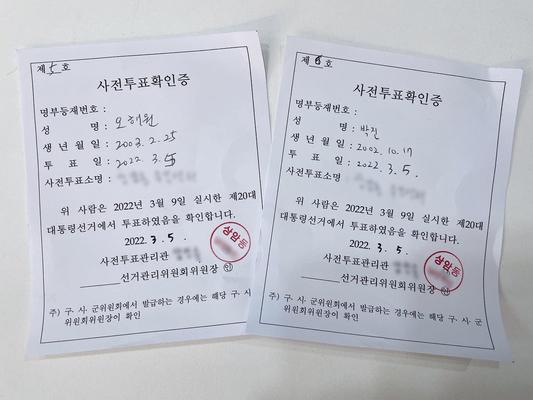 제 5 호
사전투표확인증
명부등재번호 :
성 명 : 오해원
생 년 월 일 : 2003. 2. 25
투 표 일 : 2022. 3. 5
사전투표소명 :
위 사람은 2022년 3월 9일 실시한 제20대
대통령선거에서 투표하였음을 확인합니다.
2022. 3. 5.
사전투표관리관
상암동
선거관리위원회위원장 ㊞
주) 구·시·군위원회에서 발급하는 경우에는 해당 구·시
위원회위원장이 확인
제 6 호
사전투표확인증
명부등재번호 :
성 명 : 박진
생 년 월 일 : 2002. 10. 17
투 표 일 : 2022. 3. 5.
사전투표소명 :
위 사람은 2022년 3월 9일 실시한 제20대
대통령선거에서 투표하였음을 확인합니다.
2022. 3. 5.
사전투표관리관
상암동
선거관리위원회위원장 ㊞
주) 구·시·군위원회에서 발급하는 경우에는 해당 구·시·군
위원회위원장이 확인